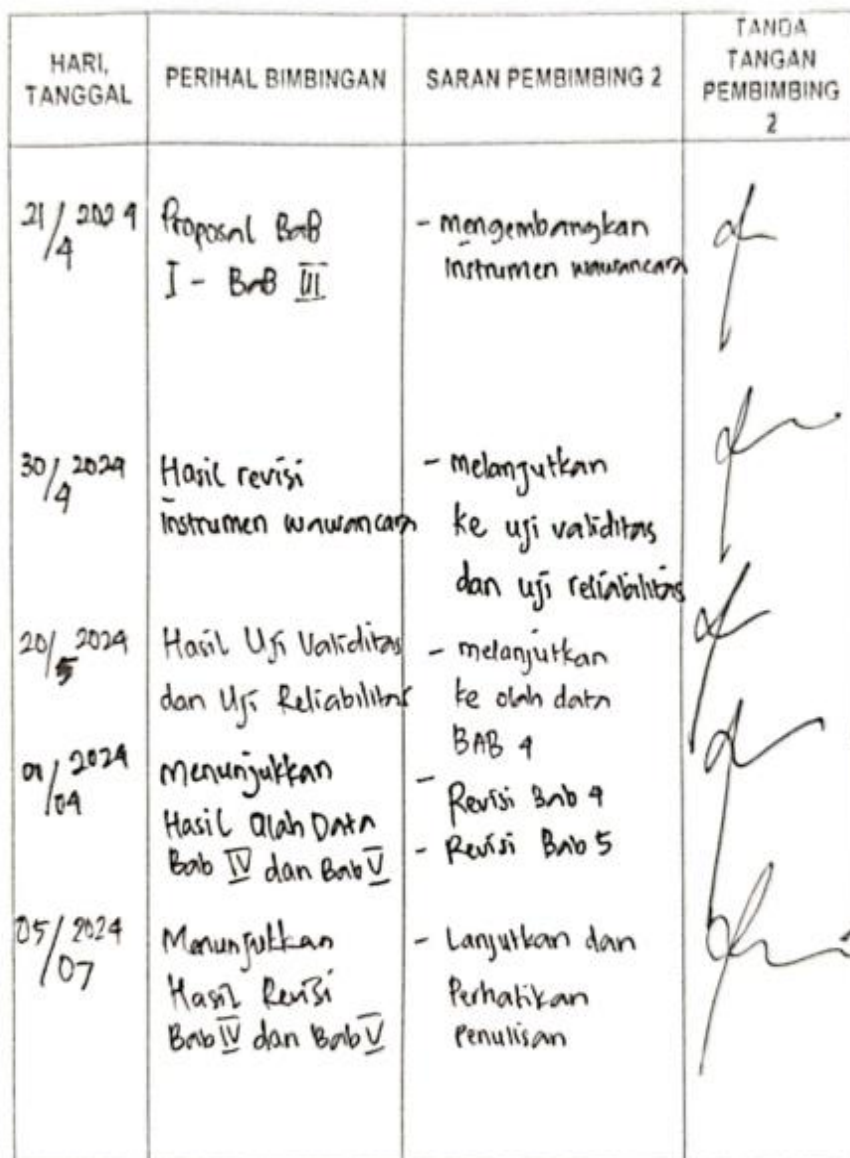 HARI, TANGGAL
PERIHAL BIMBINGAN
SARAN PEMBIMBING 2
TANDA TANGAN PEMBIMBING 2
21/4 2024
Proposal BAB
I - BAB III
- mengembangkan
instrumen wawancara
30/4 2024
Hasil revisi
instrumen wawancara
- melanjutkan
ke uji validitas
dan uji reliabilitas
20/5 2024
Hasil Uji Validitas
dan Uji Reliabilitas
- melanjutkan
ke olah data
BAB 4
01/04 2024
Menunjukkan
Hasil Olah Data
Bab IV dan Bab V
- Revisi Bab 4
- Revisi Bab 5
05/07 2024
Menunjukkan
Hasil Revisi
Bab IV dan Bab V
- Lanjutkan dan
Perhatikan
Penulisan